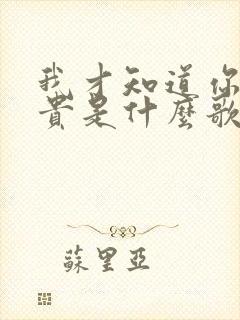 我才知道你
貴是什麼歌
蘇里亞